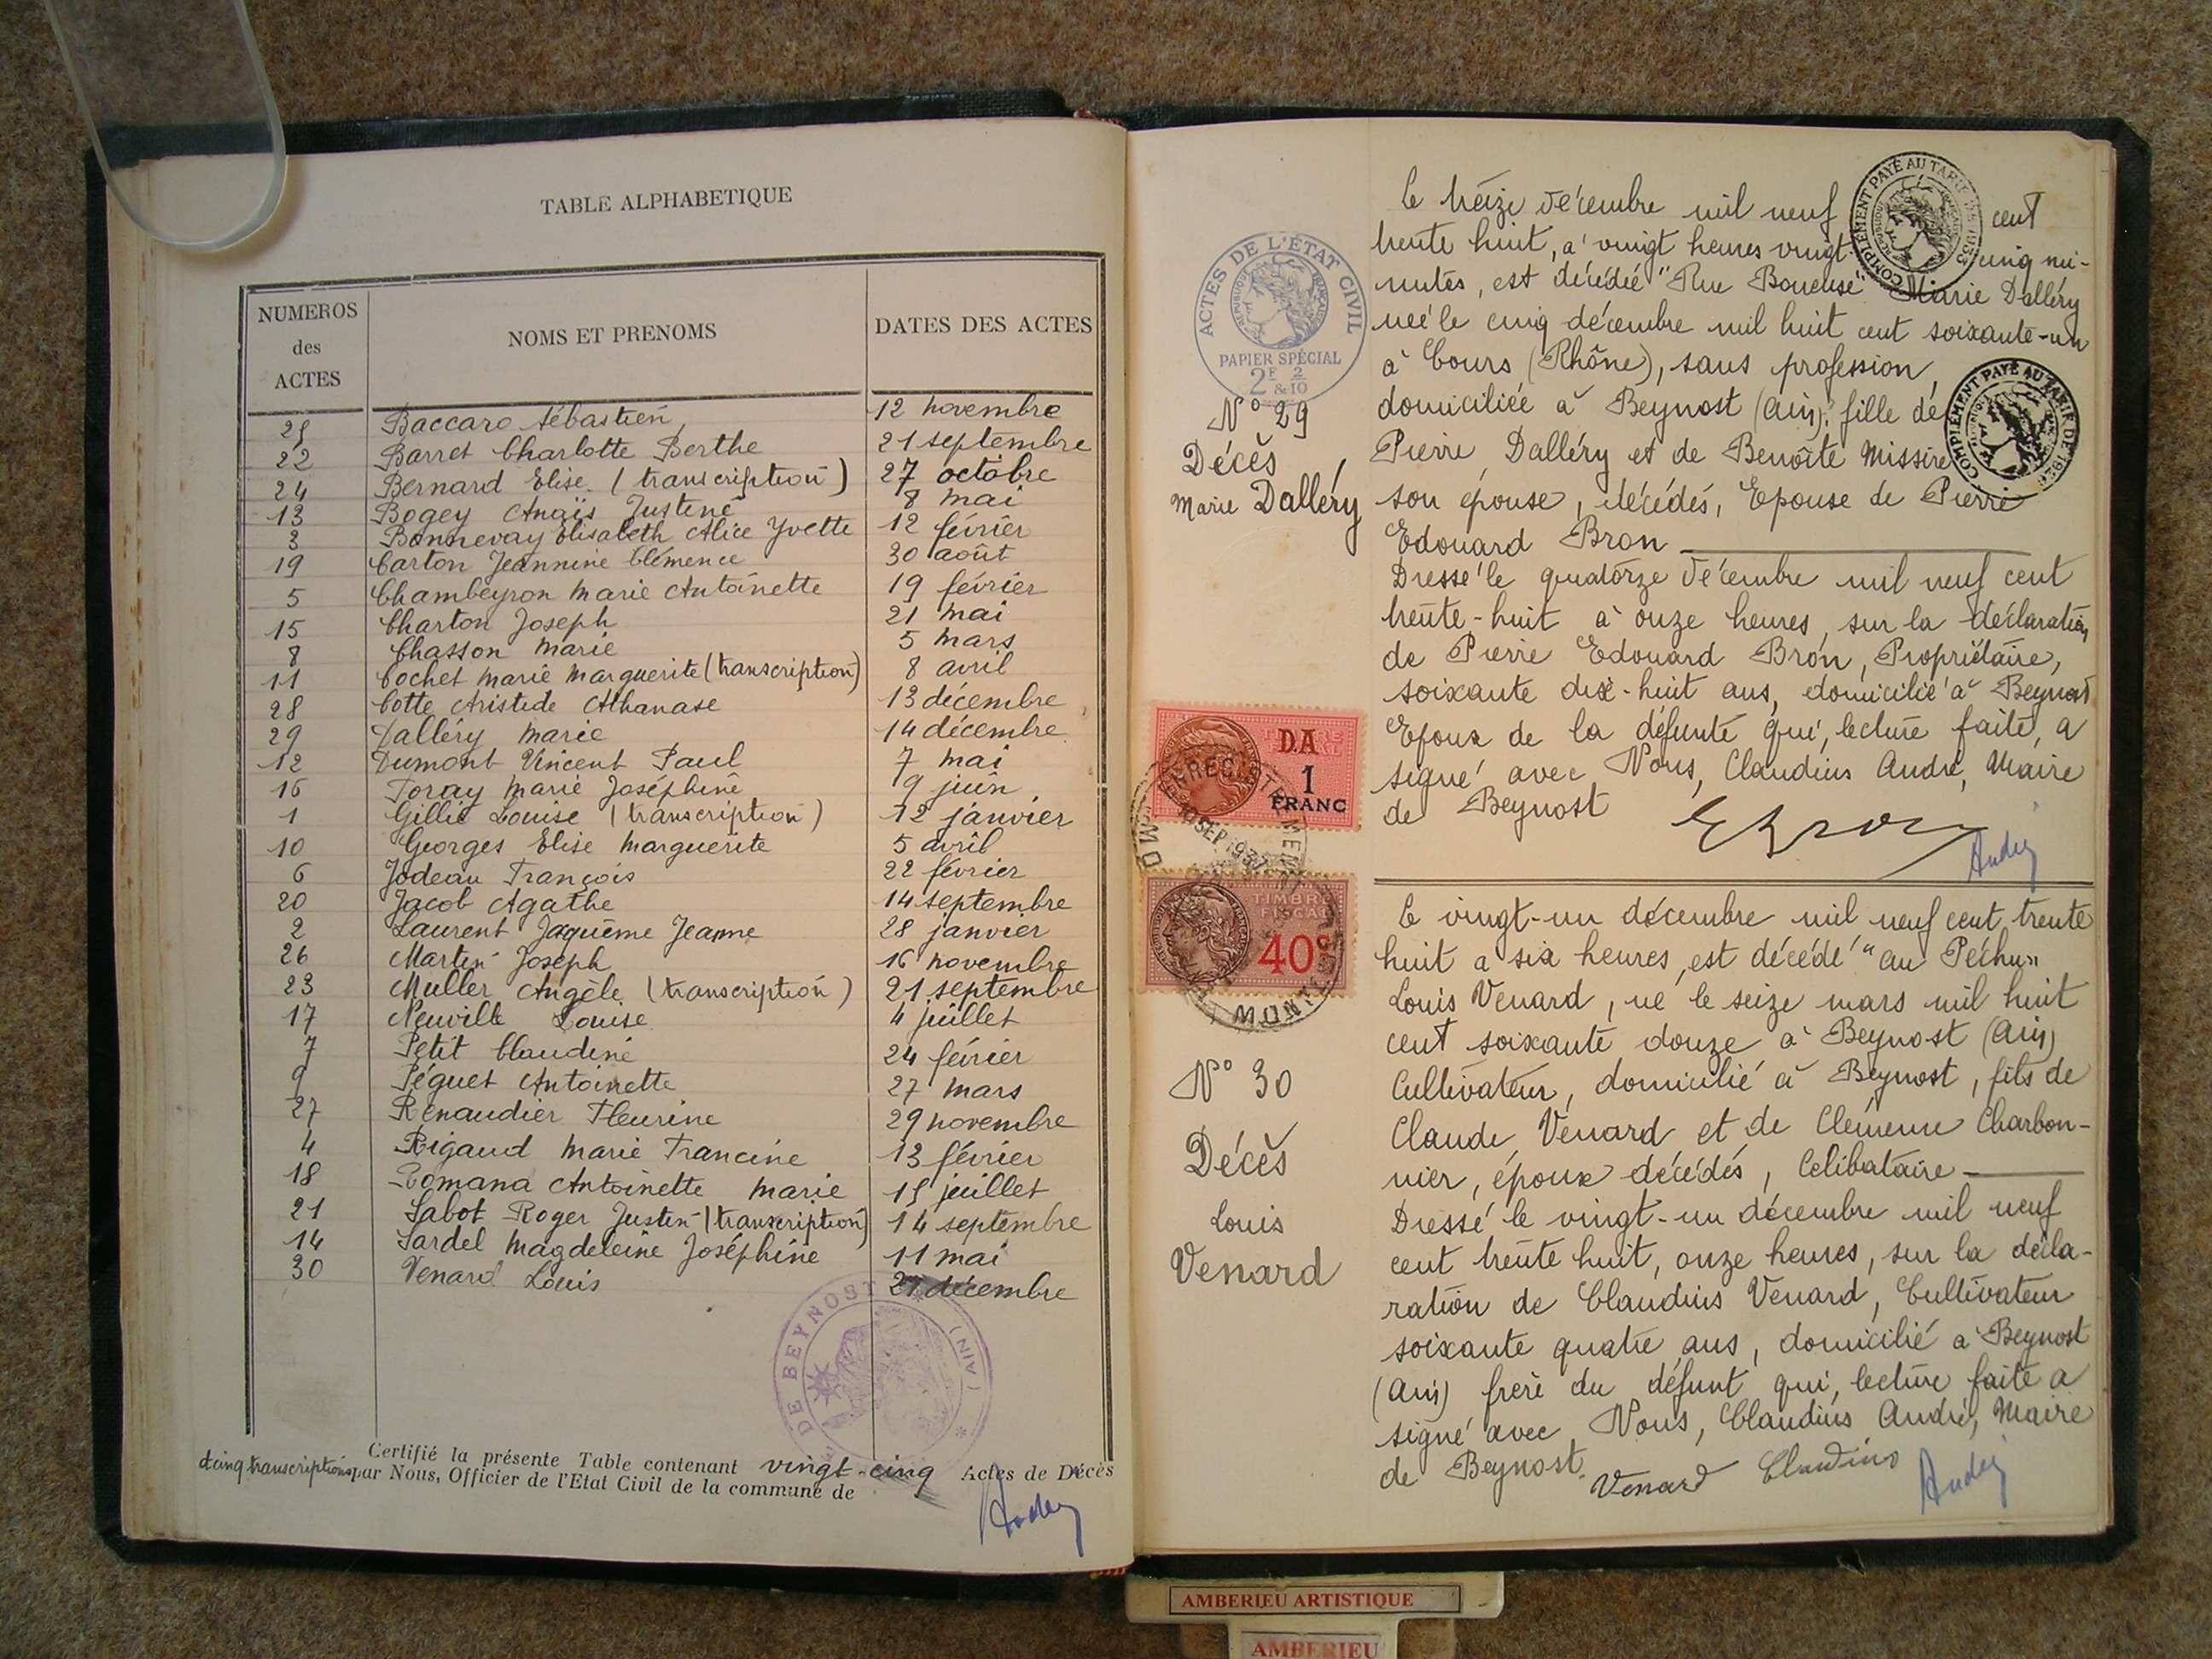 TABLE ALPHABETIQUE
NUMEROS des ACTES NOMS ET PRENOMS DATES DES ACTES
25 Baccaro Sébastien 12 novembre
22 Barret Charlotte Berthe 21 septembre
24 Bernard Elise (transcription) 27 octobre
13 Bogey Anaïs Justine 8 mai
3 Bonnevay Elisabeth Alice Yvette 12 février
19 Carton Jeannine Clémence 30 août
5 Chambeyron Marie Antoinette 19 février
15 Charton Joseph 21 mai
8 Chasson Marie 5 mars
11 Cochet Marie Marguerite (transcription) 8 avril
28 Cotte Aristide Athanase 13 décembre
29 Dalléry Marie 14 décembre
12 Dumont Vincent Paul 7 mai
16 Foray Marie Joséphine 9 juin
1 Gillié Louise (transcription) 12 janvier
10 Georges Elise Marguerite 5 avril
6 Jodeau François 22 février
20 Jacob Agathe 14 septembre
2 Laurent Jaquème Jeanne 28 janvier
26 Martin Joseph 16 novembre
23 Muller Angèle (transcription) 21 septembre
17 Neuville Louise 4 juillet
7 Petit Claudine 24 février
9 Péguet Antoinette 27 mars
27 Renaudier Fleurine 29 novembre
4 Rigaud Marie Francine 13 février
18 Romana Antoinette Marie 15 juillet
21 Sabot Roger Justin (transcription) 14 septembre
14 Sardel Magdeleine Joséphine 11 mai
30 Venard Louis 21 décembre
DE BEYNOST (AIN)
Certifié la présente Table contenant vingt-cinq Actes de Décès
& cinq transcriptions par Nous, Officier de l'Etat Civil de la commune de
André
ACTES DE L'ÉTAT CIVIL
REPUBLIQUE FRANÇAISE
PAPIER SPÉCIAL
2F 2/10
& 10
COMPLÉMENT PAYÉ AU TARIF DE 1933
COMPLÉMENT PAYÉ AU TARIF DE 1926
N° 29
Décès
Marie Dalléry
Le treize décembre mil neuf cent
trente huit, à vingt heures vingt cinq mi-
nutes, est décédée "Rue Boueuse" Marie Dalléry
née le cinq décembre mil huit cent soixante-un
à Cours (Rhône), sans profession,
domiciliée à Beynost (Ain), fille de
Pierre Dalléry et de Benoîte Missire
son épouse, décédés, Epouse de Pierre
Edouard Bron
Dressé le quatorze décembre mil neuf cent
trente-huit à onze heures, sur la déclaration
de Pierre Edouard Bron, Propriétaire,
soixante dix-huit ans, domicilié à Beynost
Epoux de la défunte qui, lecture faite, a
signé avec Nous, Claudius André, Maire
de Beynost
EBron
André
D.A
1
FRANC
ENREGISTREMENT
10 SEP 1937
TIMBRE
FISCAL
40c
N° 30
Décès
Louis
Venard
Le vingt-un décembre mil neuf cent trente
huit a six heures, est décédé "au Péchu"
Louis Venard, né le seize mars mil huit
cent soixante douze à Beynost (Ain)
Cultivateur, domicilié à Beynost, fils de
Claude Venard et de Clémence Charbon-
nier, époux décédés, Celibataire
Dressé le vingt-un décembre mil neuf
cent trente huit, onze heures, sur la décla-
ration de Claudius Venard, Cultivateur
soixante quatre ans, domicilié à Beynost
(Ain) frère du défunt qui, lecture faite a
signé avec Nous, Claudius André, Maire
de Beynost
Venard Claudius
André
AMBERIEU ARTISTIQUE
AMBERIEU